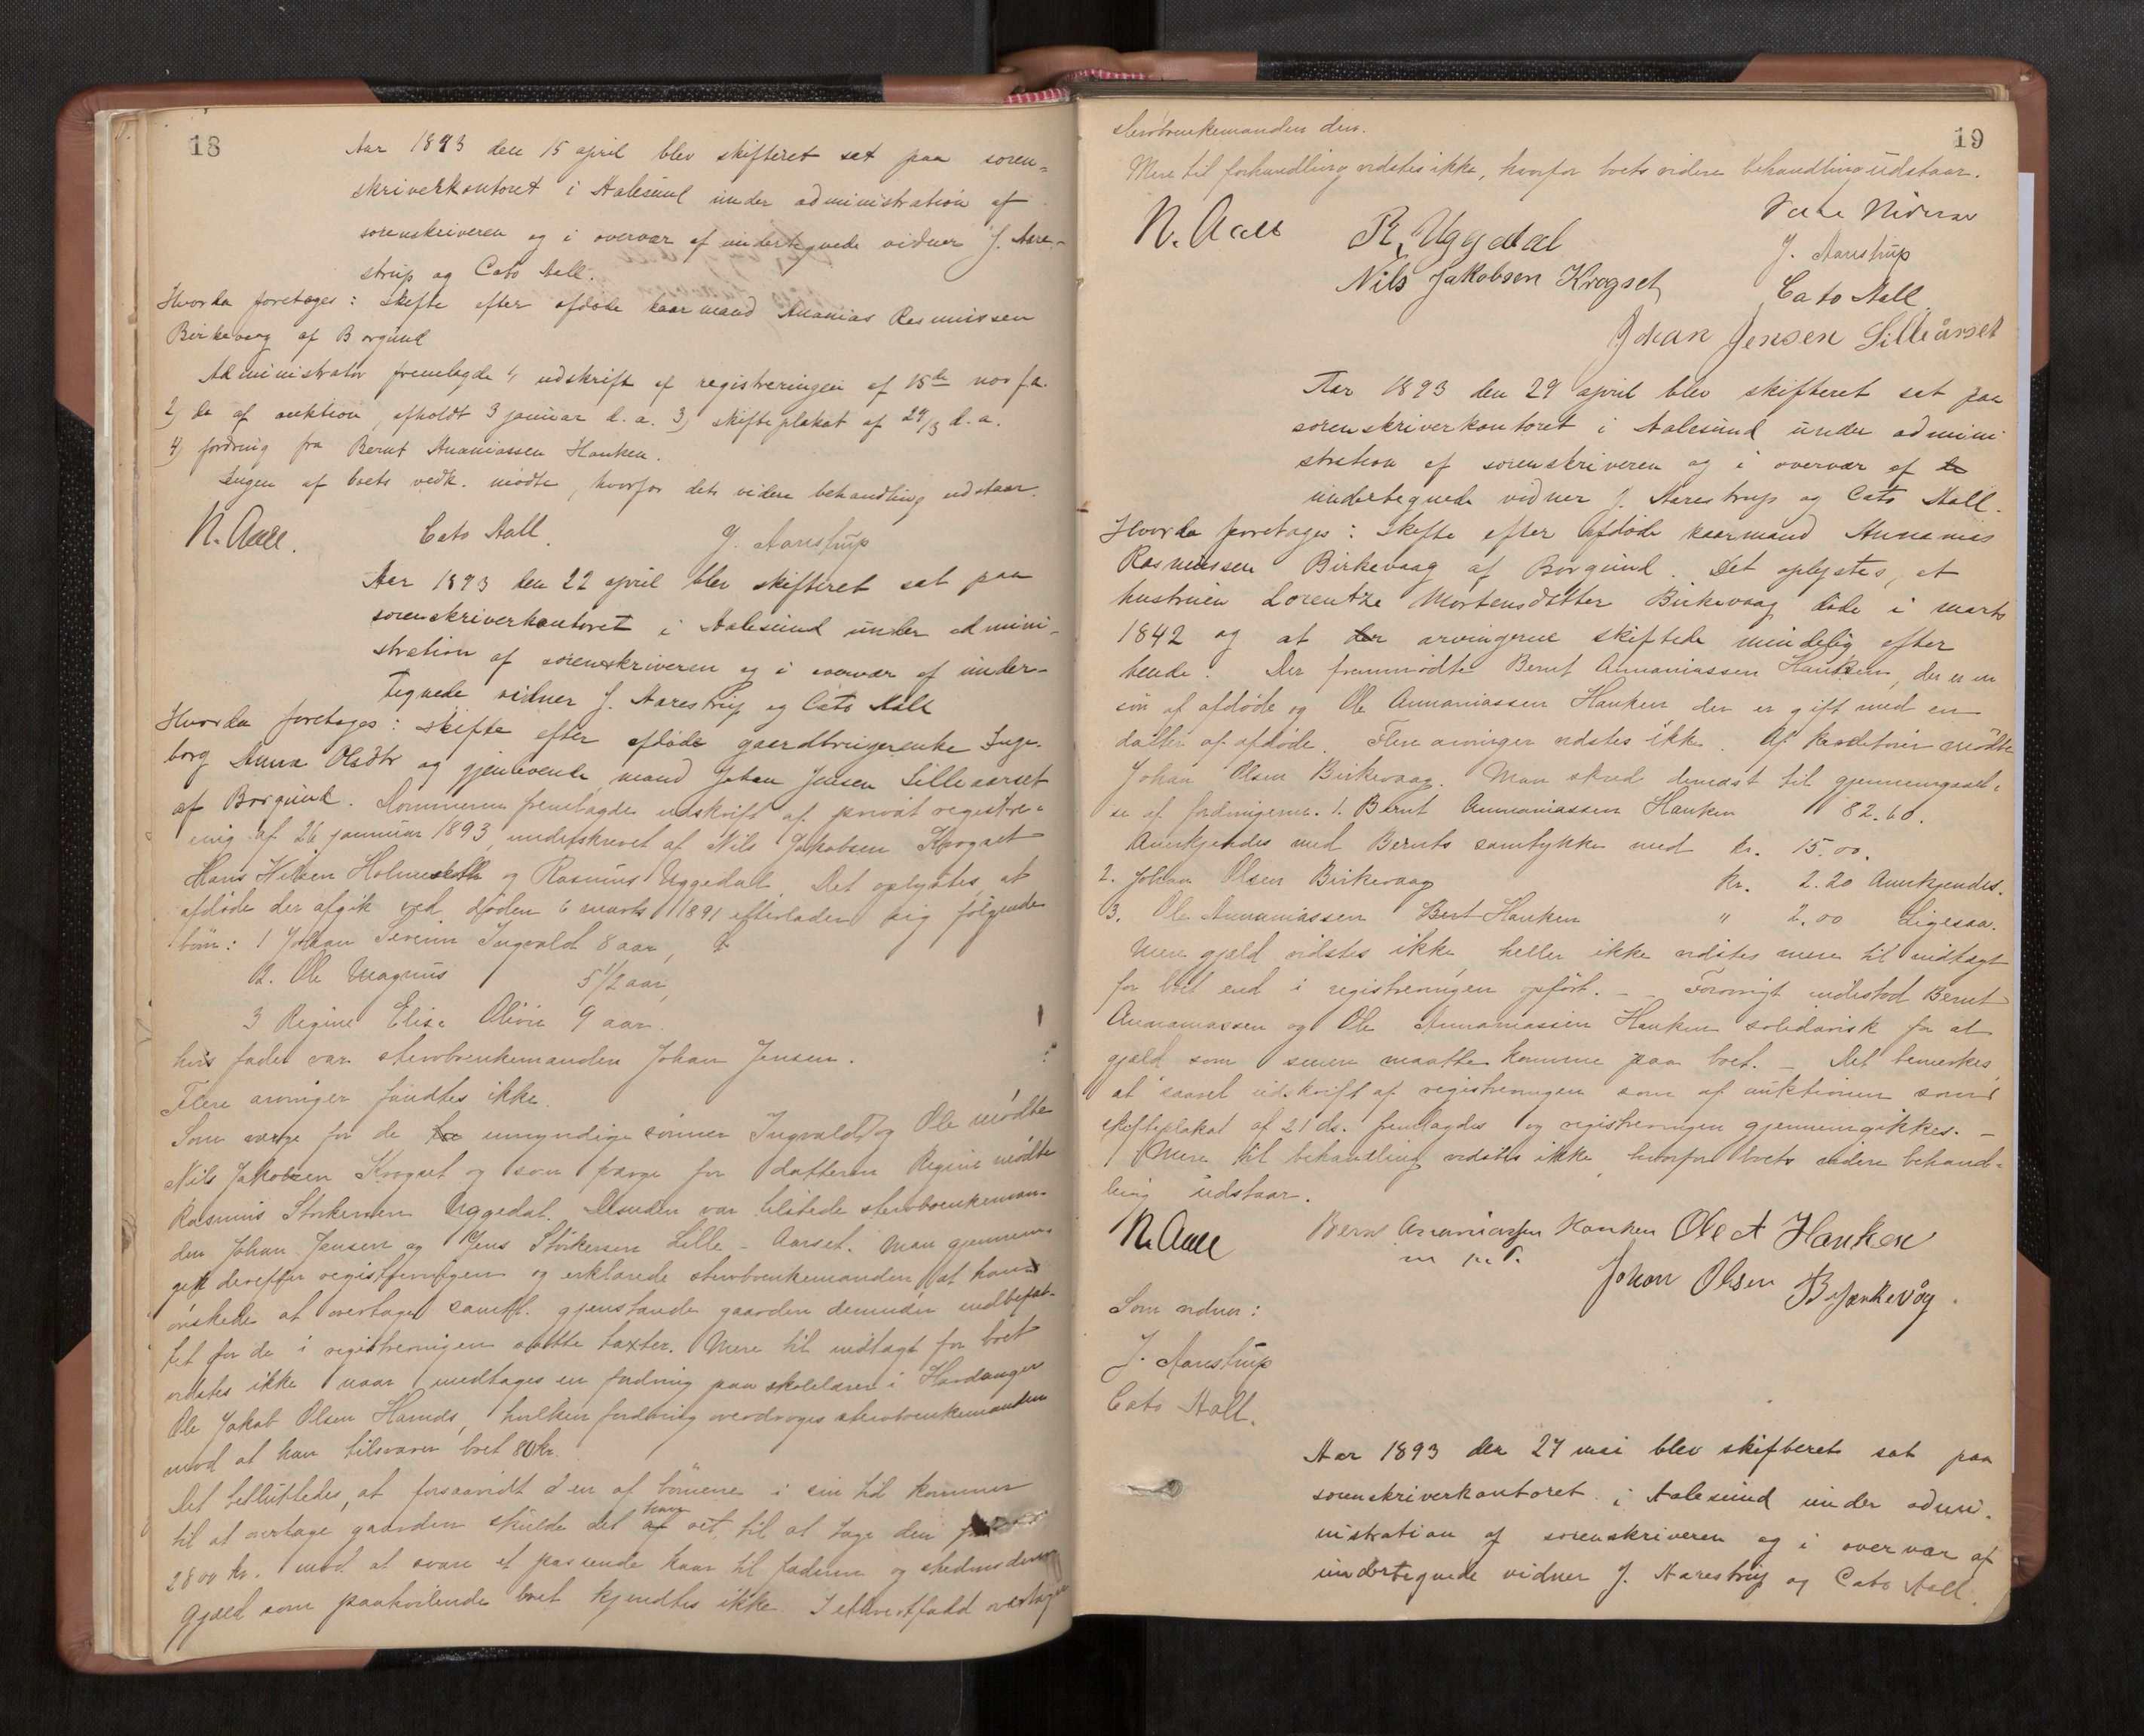 18
Aar 1893 den 15 april blev skifteret sat paa soren=
skriverkontoret i Aalesund under administration af
sorenskriveren og i overvær af undertegnede vidner J. Aare-
strup og Cato Aall.
Hvorda foretages: Skifte efter afdøde kaarmand Ananias Rasmussen
Birkevaag af Borgund
Administrator fremlagde 1, udskrift af registreringen af 15de
2) do af auktion, afholdt 3 januar d.a. 3) skifteplakat af 29/3 d.a.
4) fordring fra Bernt Ananiassen Hanken.
Ingen af boets vedk. mødte, hvorfor dets videre behandling udstaar.
N. Aall. Cato Aall. J. Aarestrup
Aar 1893 den 22 april blev skifteret sat paa
sorenskriverkontoret i Aalesund under admini-
stration af sorenskriveren og i overvær af under-
tegnede vidner J. Aarestrup og Cato Aall
Hvorda foretages: Skifte efter afdøde gaardbrugerenke Inge-
borg Anna Olsdtr og gjenlevende mand Johan Jensen Lilleaarset
af Borgund. Dommeren fremlagde udskrift af privat registre-
ring af 26 januar 1893, underskrevet af Nils Jakobsen Krogset
Hans og Rasmus Uggedal. Det oplystes, at
afdøde der afgik ved døden 6 marts 1891 efterlader sig følgende
børn: 1 Johan Severin Ingvald 8 aar,
2. Ole Magnus 5 1/2 aar,
3 Regine Elise Olivie 9 aar.
hvis fader var stervboenkemanden Johan Jensen.
Flere arvinger fandtes ikke.
Som værge for de umyndige sønner Ingvald og Ole mødte
Nils Jakobsen Krogset og som værge for datteren Regine mødte
Rasmus Storkersen Uggedal. Desuden var tilstede stervboenkeman-
den Johan Jensen og Jens Storkersen Lille-Aarset. Man gjennem-
gik derefter registreringen og erklærede stervboenkemanden, at han
ønskede at overtage samtl. gjenstande gaarden derunder indbefat-
tet for de i registreringen satte taxter. Mere til indtægt for boet
vidstes ikke naar undtages en fordring paa skolelærer i Hardanger
Ole Jakob Olsen, hvilken fordring overdroges stervboenkemanden
mod at han tilsvarer boet 80 kr.
Det besluttedes, at forsaavidt en af børnene i sin tid kommer
til at overtage gaarden skulde det have ret til at tage den for
2800 kr. mod at svare et passende kaar til faderen og
Gjæld som paahvilende boet kjendtes ikke. I ethvert fald overtager
19
stervboenkemanden den.
Mere til forhandling vidstes ikke, hvorfor boets videre behandling udstaar.
N. Aall R. Uggedal Som Vidner
Nils Jakobsen Krogset J. Aarestrup
Cato Aall
Johan Jensen Lilleårset
Aar 1893 den 29 april blev skifteret sat paa
sorenskriverkontoret i Aalesund under admini
stration af sorenskriveren og i overvær af
undertegnede vidner J. Aarestrup og Cato Aall.
Hvorda foretages: Skifte efter afdøde kaarmand Annanias
Rasmussen Birkevaag af Borgund. Det oplystes, at
hustruen Lorentze Mortensdatter Birkevaag døde i marts
1842 og at arvingerne skiftede mindelig efter
hende. Der fremmødte Bernt Annaniassen Hanken, der er en
søn af afdøde og Ole Annaniassen Hanken der er gift med en
datter af afdøde. Flere arvinger vidstes ikke. Af kreditorer mødte
Johan Olsen Birkevaag. Man skred dernæst til gjennemgaael-
se af fordringerne. 1. Bernt Annaniassen Hanken 82.60.
Anerkjendes med Bernts samtykke med kr. 15.00.
2. Johan Olsen Birkevaag kr. 2.20 Anerkjendes.
3. Ole Annaniassen Hanken " 2.00 Ligesaa.
Mere gjæld vidstes ikke, heller ikke vidstes mere til indtægt
for boet end i registreringen opført. - Forøvrigt indestod Bernt
Annaniassen og Ole Annaniassen Hanken solidarisk for al
gjæld som senere maatte komme paa boet. - Det bemerkes,
at saavel udskrift af registreringen som af auktionen samt
skifteplakat af 21 ds. fremlagdes og registreringen gjennemgikkes. -
Mere til behandling vidstes ikke, hvorfor boets videre behand-
ling udstaar.
N. Aall Bernt Ananiassen Hanken Ole A Hanken
m p. P. Johan Olsen Bjørkevåg.
Som vidner:
J. Aarestrup
Cato Aall.
Aar 1893 den 27 mai blev skifteret sat paa
sorenskriverkontoret i Aalesund under admi-
nistration af sorenskriveren og i overvær af
undertegnede vidner J. Aarestrup og Cato Aall.